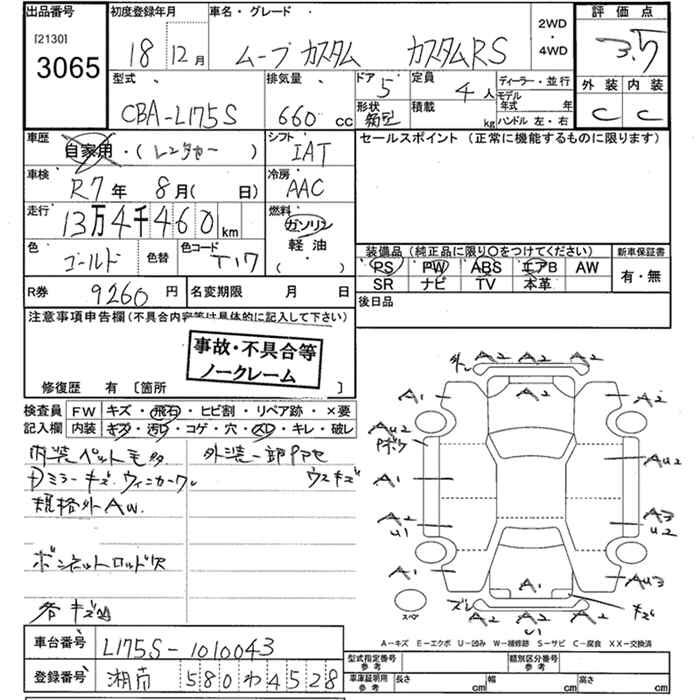 出品番号 初度登録年月 車名・グレード 2WD・4WD 評価点
[2130]
3065 18年 12月 ムーブカスタム カスタムRS 3.5
型式 排気量 ドア 5 定員 4人 ディーラー・並行 外装 内装
CBA-L175S 660 cc 形状 箱型 積載 kg モデル年式 年 C C
ハンドル 左・右
車歴 自家用・(レンタカー) シフト IAT セールスポイント (正常に機能するものに限ります)
車検 R7年 8月( 日) 冷房 AAC
走行 13万4千460km 燃料 ガソリン
色 ゴールド 色替 色コード T17 軽油
( )
装備品 (純正品に限り○をつけてください) 新車保証書
PS PW ABS エアB AW 有・無
SR ナビ TV 本革
R券 9260円 名変期限 月 日 後日品
注意事項申告欄(不具合内容等は具体的に記入して下さい)
事故・不具合等
ノークレーム
修復歴 有 [箇所 ]
検査員 FW キズ・飛石・ヒビ割・リペア跡・×要
記入欄 内装 キズ・汚れ・コゲ・穴・スレ・キレ・破レ
内装ペット毛多 外装一部
ミラーキズ ウィンカーワレ ウスキズ
規格外AW.
ボンネットロッド欠
各キズ凹
A2 A2 A2
A1 A2 A2
AU2
Pボケ AU2
A1
A2 A3
U1 U2
A1 A1 AU3
ズレ キズ
A2 A2 A2
U1
スペア
A-キズ E-エクボ U-凹み W-補修跡 S-サビ C-腐食 XX-交換済
車台番号 L175S-1010043
登録番号 湘南 580 わ 4528
型式指定番号 参考 類別区分番号 参考
車庫証明用 参考 長さ cm 幅 cm 高さ cm